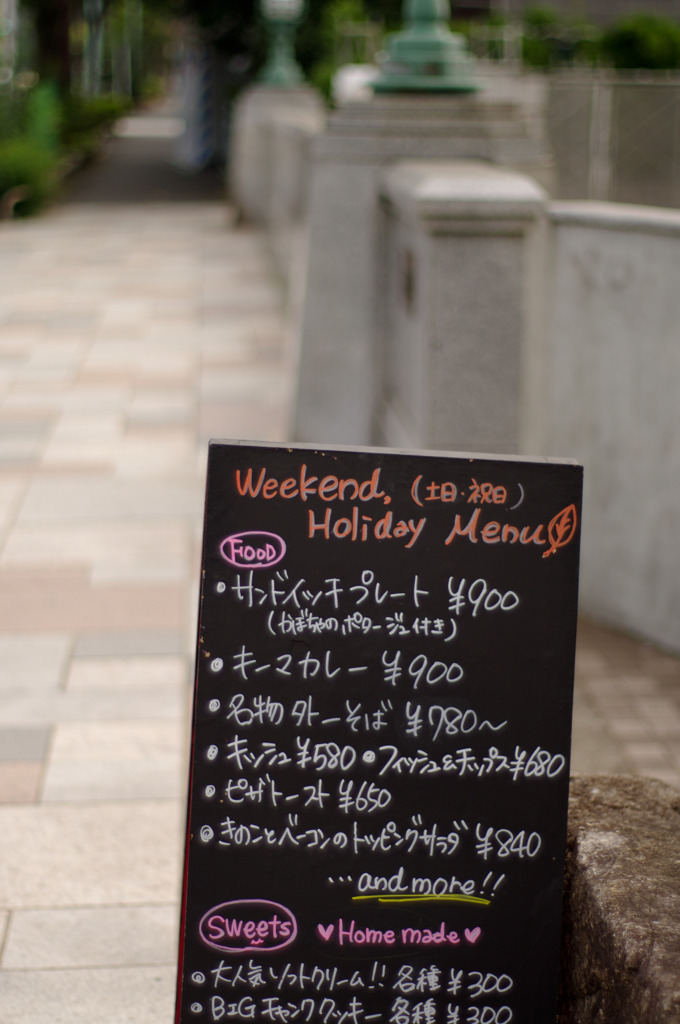 Weekend, (土日・祝日)
Holiday Menu
FOOD
・サンドイッチプレート ¥900
(かぼちゃのポタージュ付き)
・キーマカレー ¥900
・名物タトーそば ¥780〜
・キッシュ¥580 ・フィッシュ&チップス¥680
・ピザトースト ¥650
・きのことベーコンのトッピングサラダ ¥840
…and more!!
Sweets ♥Home made♥
・大人気ソフトクリーム!! 各種 ¥300
・BIGチャンククッキー 各種 ¥300